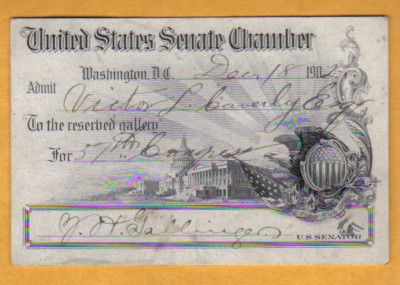 United States Senate Chamber
Washington, D.C. Dec. 18 1902
Admit
Victor L. Caverly Esq
To the reserved gallery
For 57th Congress
J. H. Gallinger
U.S. SENATOR